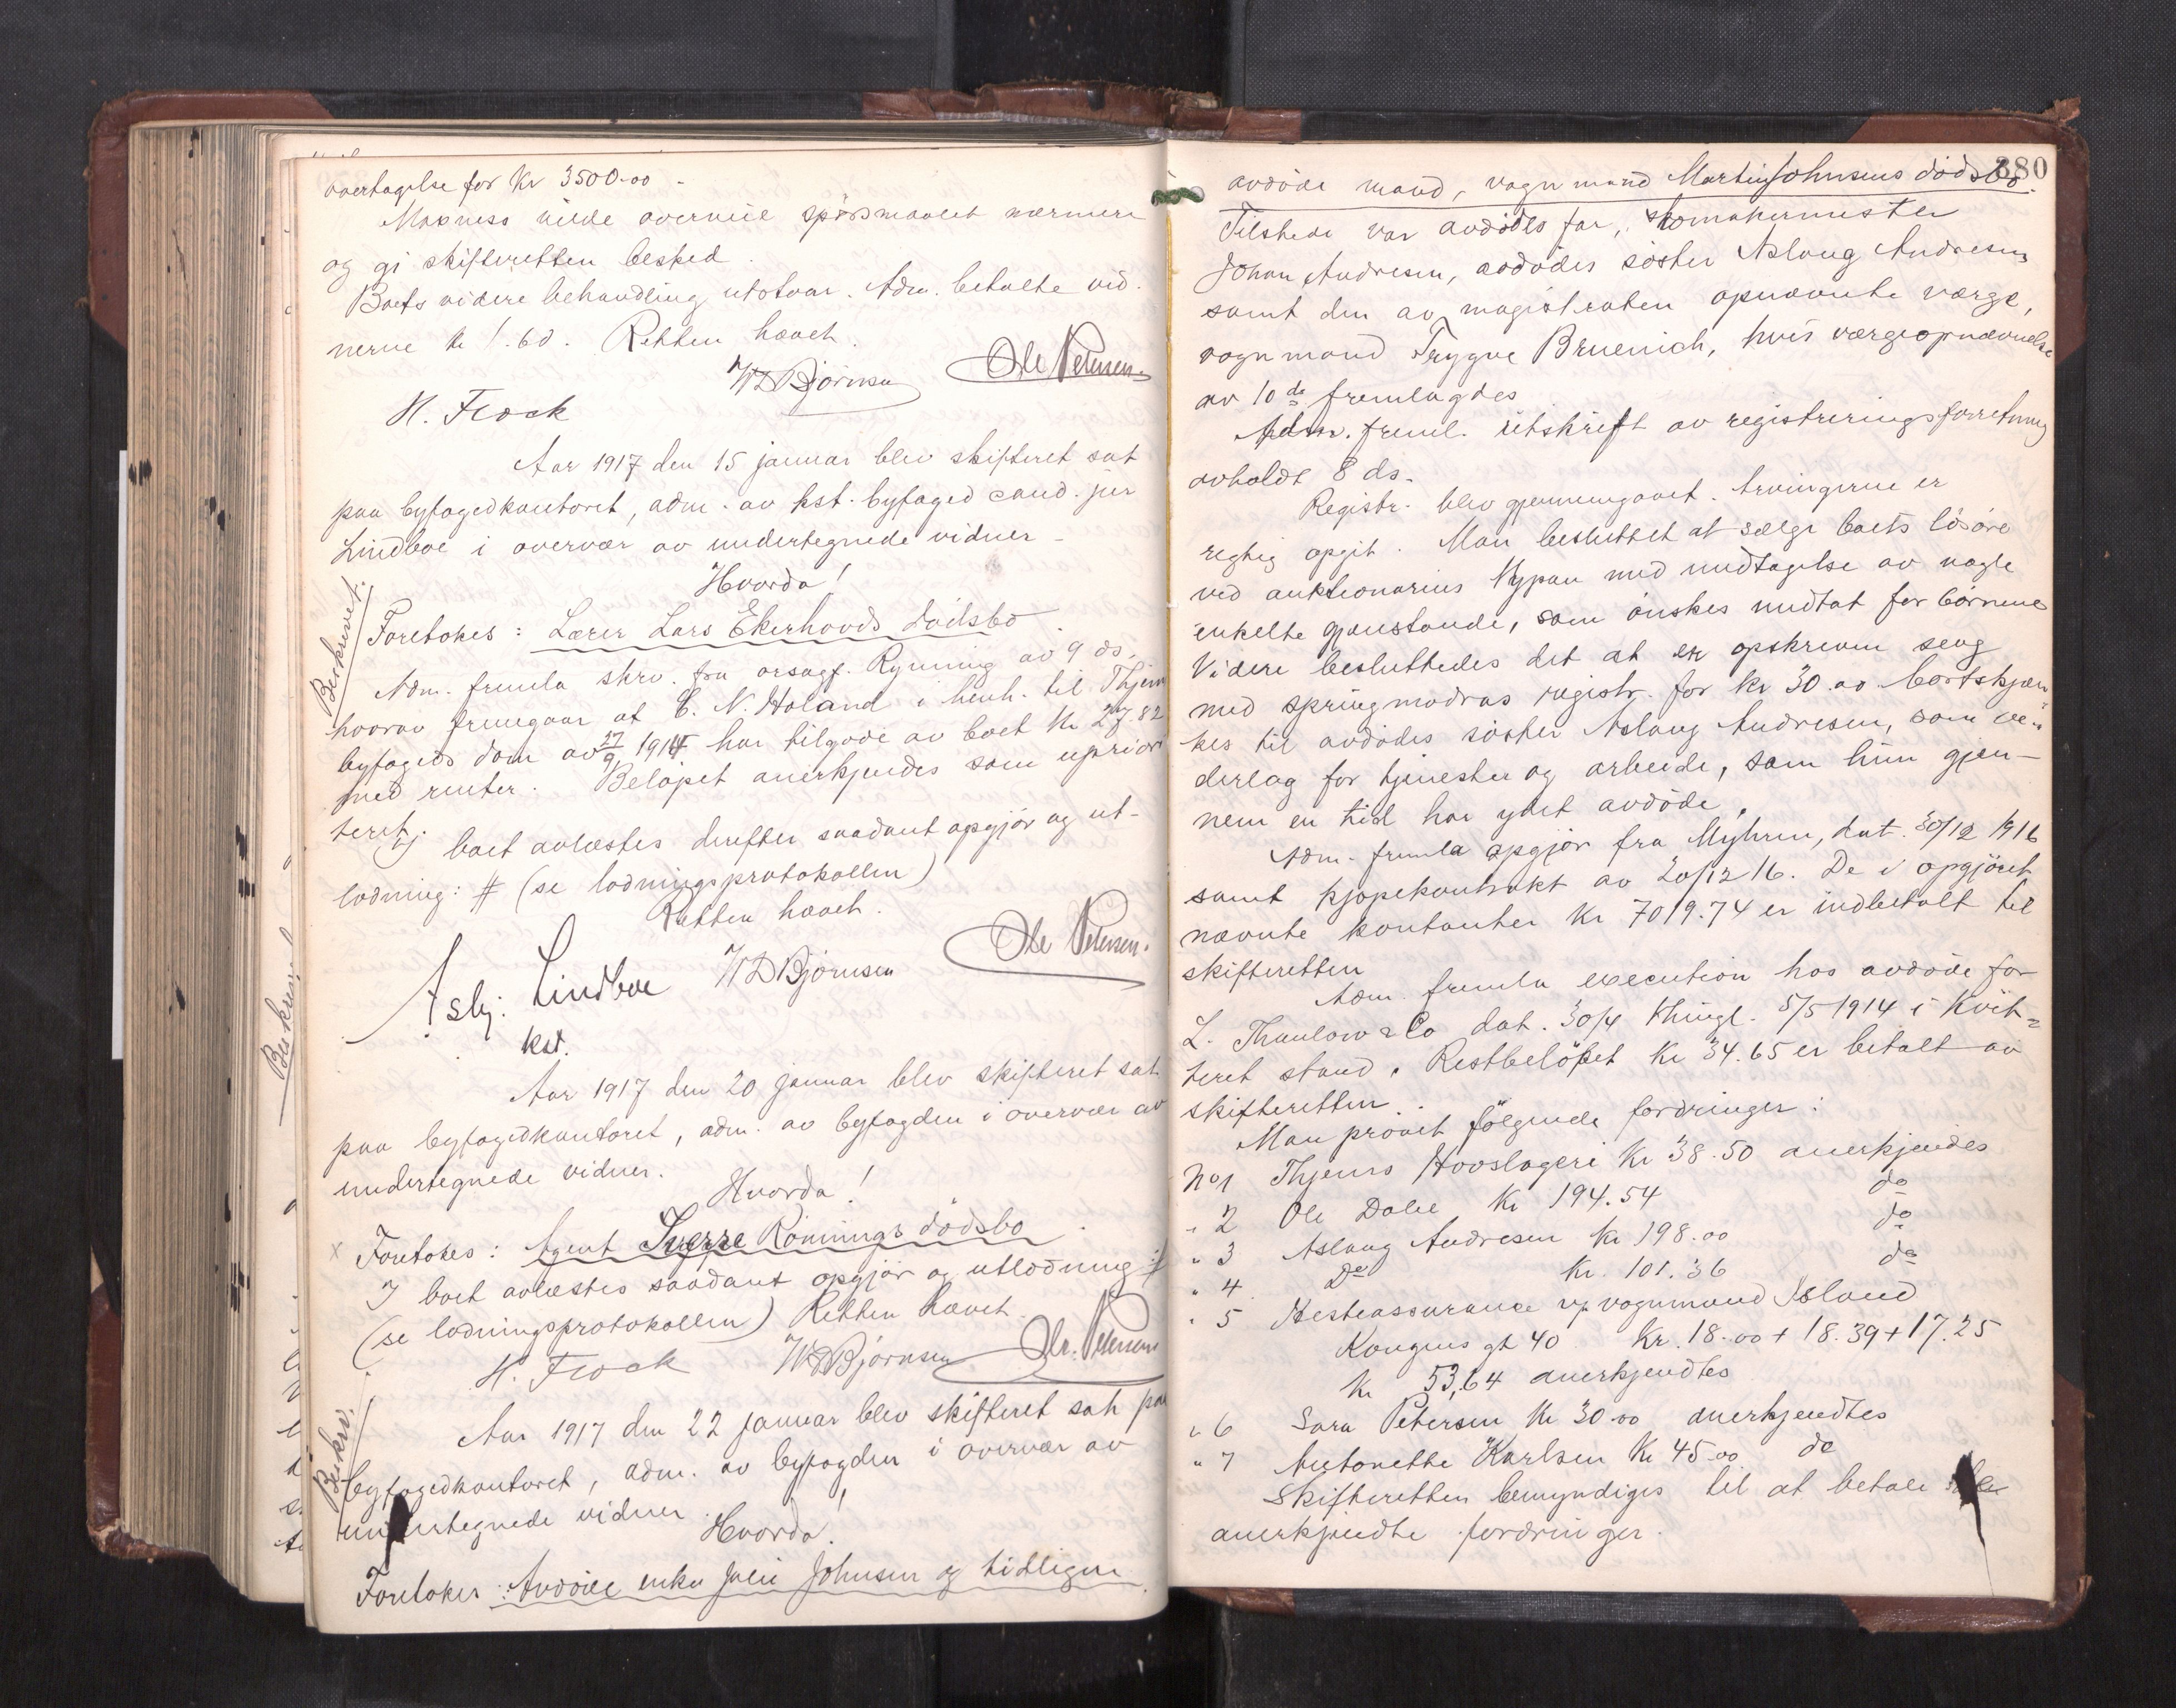 overtagelse for Kr 3500.00 -
Maxness vilde overveie spörsmaalet nærmere
og gi skifteretten besked.
Boets videre behandling utstaar. Adm. betalte vid-
nerne kr 1.60. Retten hævet.
H. Frock W D Björnsen Ole Petersen.
Aar 1917 den 15 januar blev skifteret sat
paa byfogedkontoret, adm. av kst. byfoged cand. jur
Lindboe i overvær av undertegnede vidner -
Hvorda!
Beskrevet.
Foretokes: Lærer Lars Ekerhovds dödsbo
Adm. fremla skriv. fra orsagf. Rynning av 9 ds.
hvorav fremgaar at C. N. Holand i henh. til Thjem
byfogeds dom av 27/9 1914 har tilgode av boet Kr 27.82
med renter. Belöpet anerkjendes som uprior
teret.
I boet avlæstes derefter saadant opgjör og ut-
lodning: # (se lodningsprotokollen)
Retten hævet.
Asbj: Lindboe W D Björnsen Ole Petersen.
kst.
Aar 1917 den 20 januar blev skifteret sat
paa byfogedkontoret, adm. av byfogden i overvær av
undertegnede vidner.
Hvorda!
x Foretokes: Agent Sverre Rönnings dödsbo
I boet avlæstes saadant opgjör og utlodning #
(se lodningsprotokollen) Retten hævet.
H. Frock W D Björnsen Ole Petersen
Beskrv.
Aar 1917 den 22 januar blev skifteret sat paa
byfogedkontoret, adm. av byfogden i overvær av
undertegnede vidner.
Hvorda!
Foretokes: Avdöde enke Julie Johnsen og tidligere
Beskrevet
380
avdöde mand, vognmand Martin Johnsens dödsbo.
Tilstede var avdödes far, skomakermester
Johan Andresen, avdödes söster Aslaug Andresen
samt den av magistraten opnævnte værge,
vognmand Trygve Bruenich, hvis værgeopnævnelse
av 10 ds fremlagdes
Adm. freml. utskrift av registreringsforretning
avholdt 8 ds.
Registr. blev gjennemgaaet. Arvingerne er
regtig opgit. Man besluttet at sælge boets lösöre
ved auktionarius Nypan med undtagelse av nogle
enkelte gjenstande, som önskes undtat for börnene
Videre besluttedes det at en opskreven seng
med springmadras registr. for kr 30.00 bortskjæn
kes til avdödes söster Aslaug Andresen, som ve-
derlag for tjenester og arbeide, som hun gjen-
nem en tid har ydet avdöde.
Adm. fremla opgjör fra Myhren, dat. 30/12 1916
samt kjöpekontrakt av 20/12 16. De i opgjöret
nævnte kontanter Kr 7019.74 er indbetalt til
skifteretten
Adm. fremla execution hos avdöde for
L. Thaulow & Co dat. 30/4 thingl. 5/5 1914 i kvit-
teret stand. Restbelöpet kr 34.65 er betalt av
skifteretten.
Man prövet fölgende fordringer:
No 1 Thjems Hovslageri Kr 38.50 anerkjendes
" 2 Ole Dalee Kr 194.54 do
" 3 Aslaug Andresen Kr 198.00 do
" 4 Do Kr. 101.36 do
" 5 Hesteassurance v/ vognmand Island
Kongens gt 40 Kr. 18.00 + 18.39 + 17.25
Kr 53,64 anerkjendtes
" 6 Sara Petersen Kr 30.00 anerkjendtes
" 7 Antonette Karlsen Kr 45.00 do
Skifteretten bemyndiges til at betale
anerkjendte fordringer.